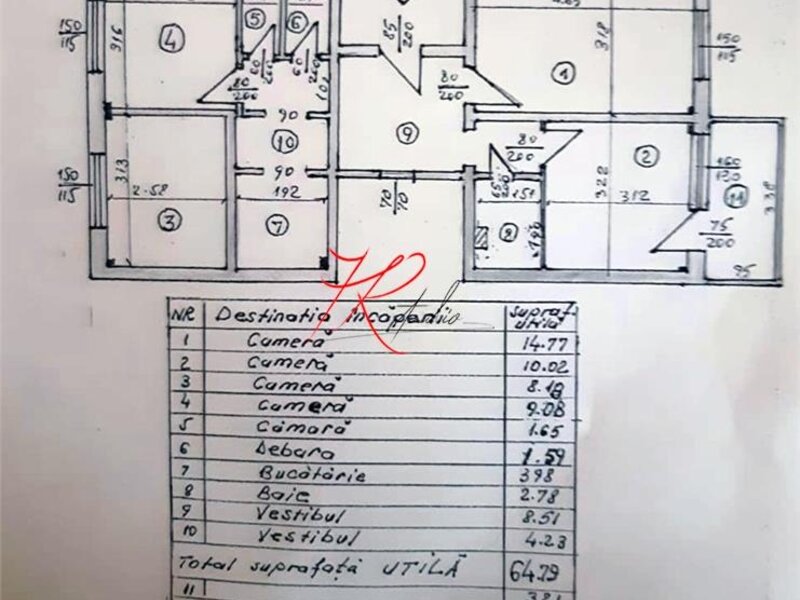 150
115
916
4
5
6
60
200
60
200
85
200
80
200
80
200
1
318
150
115
102
90
10
90
192
7
9
70
70
150
115
313
2.58
3
80
200
65
200
151
8
2
322
312
160
120
11
338
75
200
95
NR Destinatia încăperii supraf. utilă
1 Cameră 14.77
2 Cameră 10.02
3 Cameră 8.18
4 Cameră 9.08
5 Cămară 1.65
6 Debara 1.59
7 Bucătărie 398
8 Baie 2.78
9 Vestibul 8.51
10 Vestibul 4.23
Total suprafață UTILĂ 64.79
11 3.81